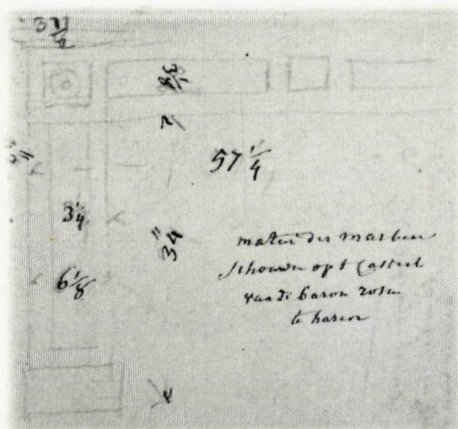 3 1/2
3 1/8
57 1/4
3 1/4
34
6 1/8
maten der marbere
schouwe opt Casteel
van de baron rose
te haren